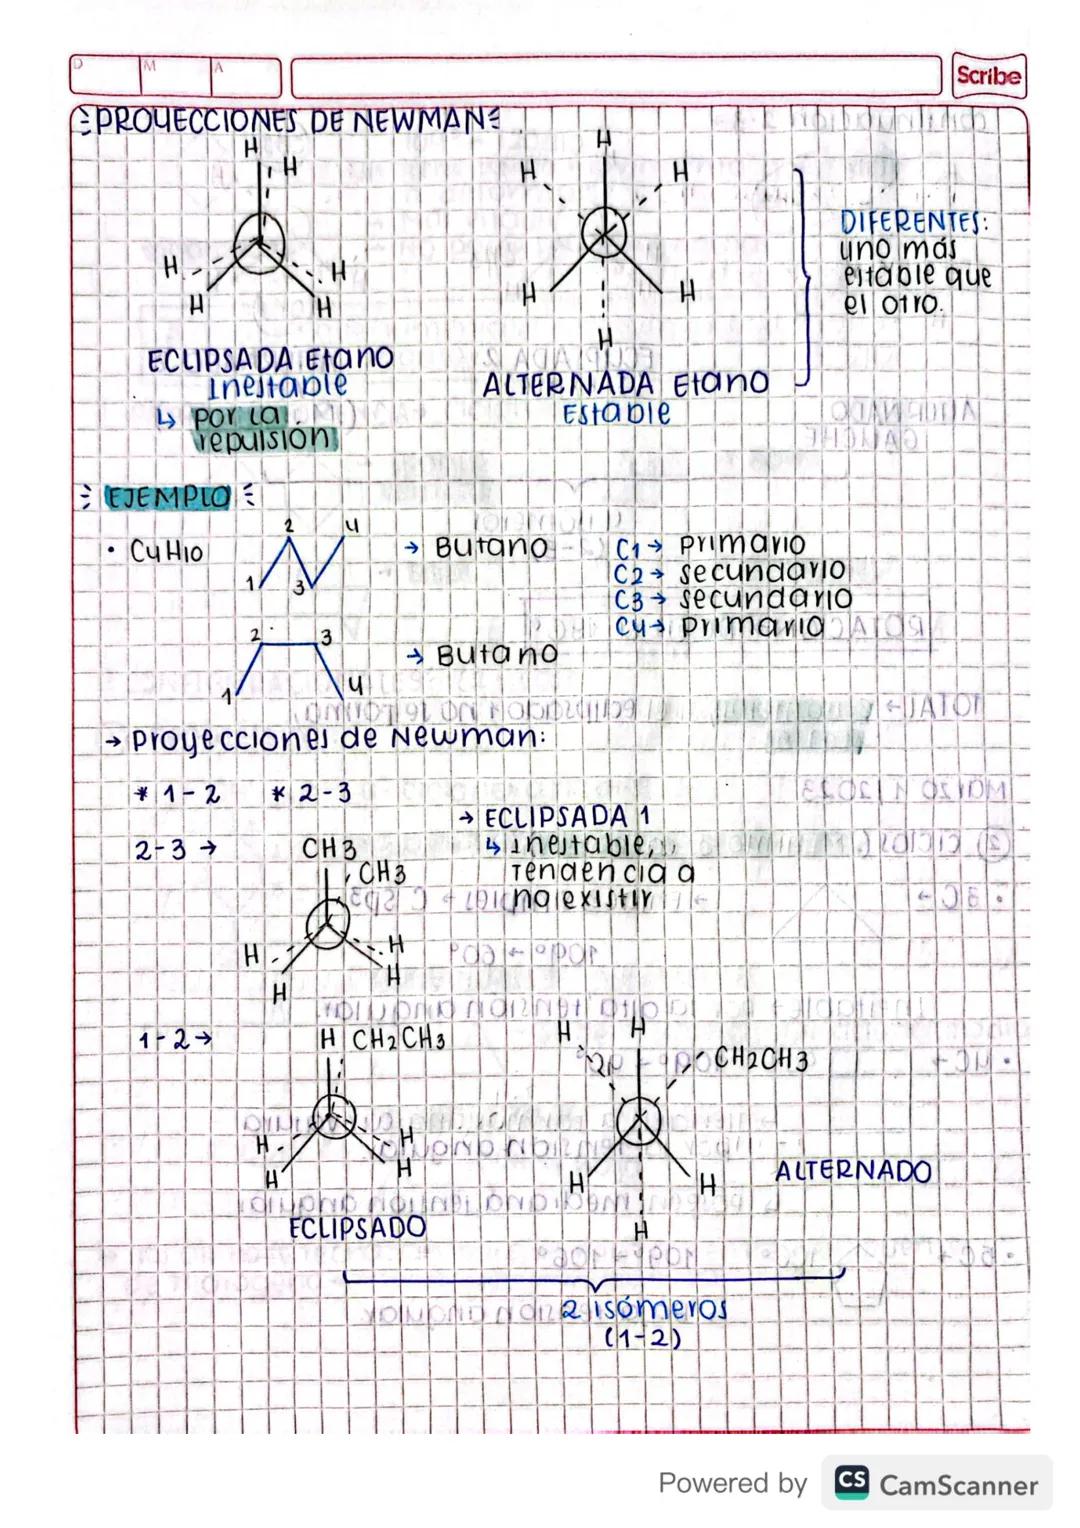 D M A
Scribe
PROYECCIONES DE NEWMAN
H
H
H
H
H
H
H
H
H
H
H
H
DIFERENTES:
uno más
estable que
el otro.
ECLIPSADA Etano
Inestable
↳ por la
repulsión
ALTERNADA Etano
Estable
EJEMPLO
• C4H10
1 2 3 4
→ Butano
C1 → primario
C2 → secundario
C3 → secundario
C4 → primario
1 2 3 4
→ Butano
→ Proyecciones de Newman:
* 1-2 * 2-3
→ ECLIPSADA 1
↳ Inestable,
Tendencia a
no existir
2-3 →
CH3
CH3
H
H
H
H
1-2 →
H CH2CH3
H
H
H
H
ECLIPSADO
H H
CH2CH3
H H
H
ALTERNADO
2 isómeros
(1-2)
Powered by CS CamScanner